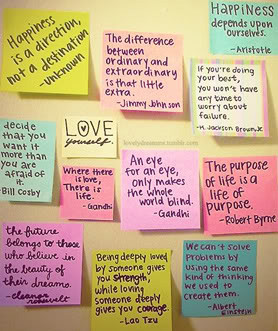 Happiness
is a direction,
not a destination
-unknown
The difference
between
ordinary and
extraordinary
is that little
extra.
-Jimmy Johnson
HAPPINESS
depends upon
ourselves.
-Aristotle
If you're doing
your best,
you won't have
any time to
worry about
failure.
-H. Jackson Brown, Jr.
decide
that you
want it
more than
you are
afraid of
it.
- Bill Cosby
LOVE
yourself.
Where there
is love,
There is
life.
-Gandhi
An eye
for an eye,
only makes
the whole
world blind.
-Gandhi
The purpose
of life is a
life of
purpose.
-Robert Byrne
the future
belongs to those
who believe in
the beauty of
their dreams.
-eleanor
roosevelt
Being deeply loved
by someone gives
you strength,
while loving
someone deeply
gives you courage.
-Lao Tzu
We can't solve
problems by
using the same
kind of thinking
we used to
create them.
-Albert
Einstein